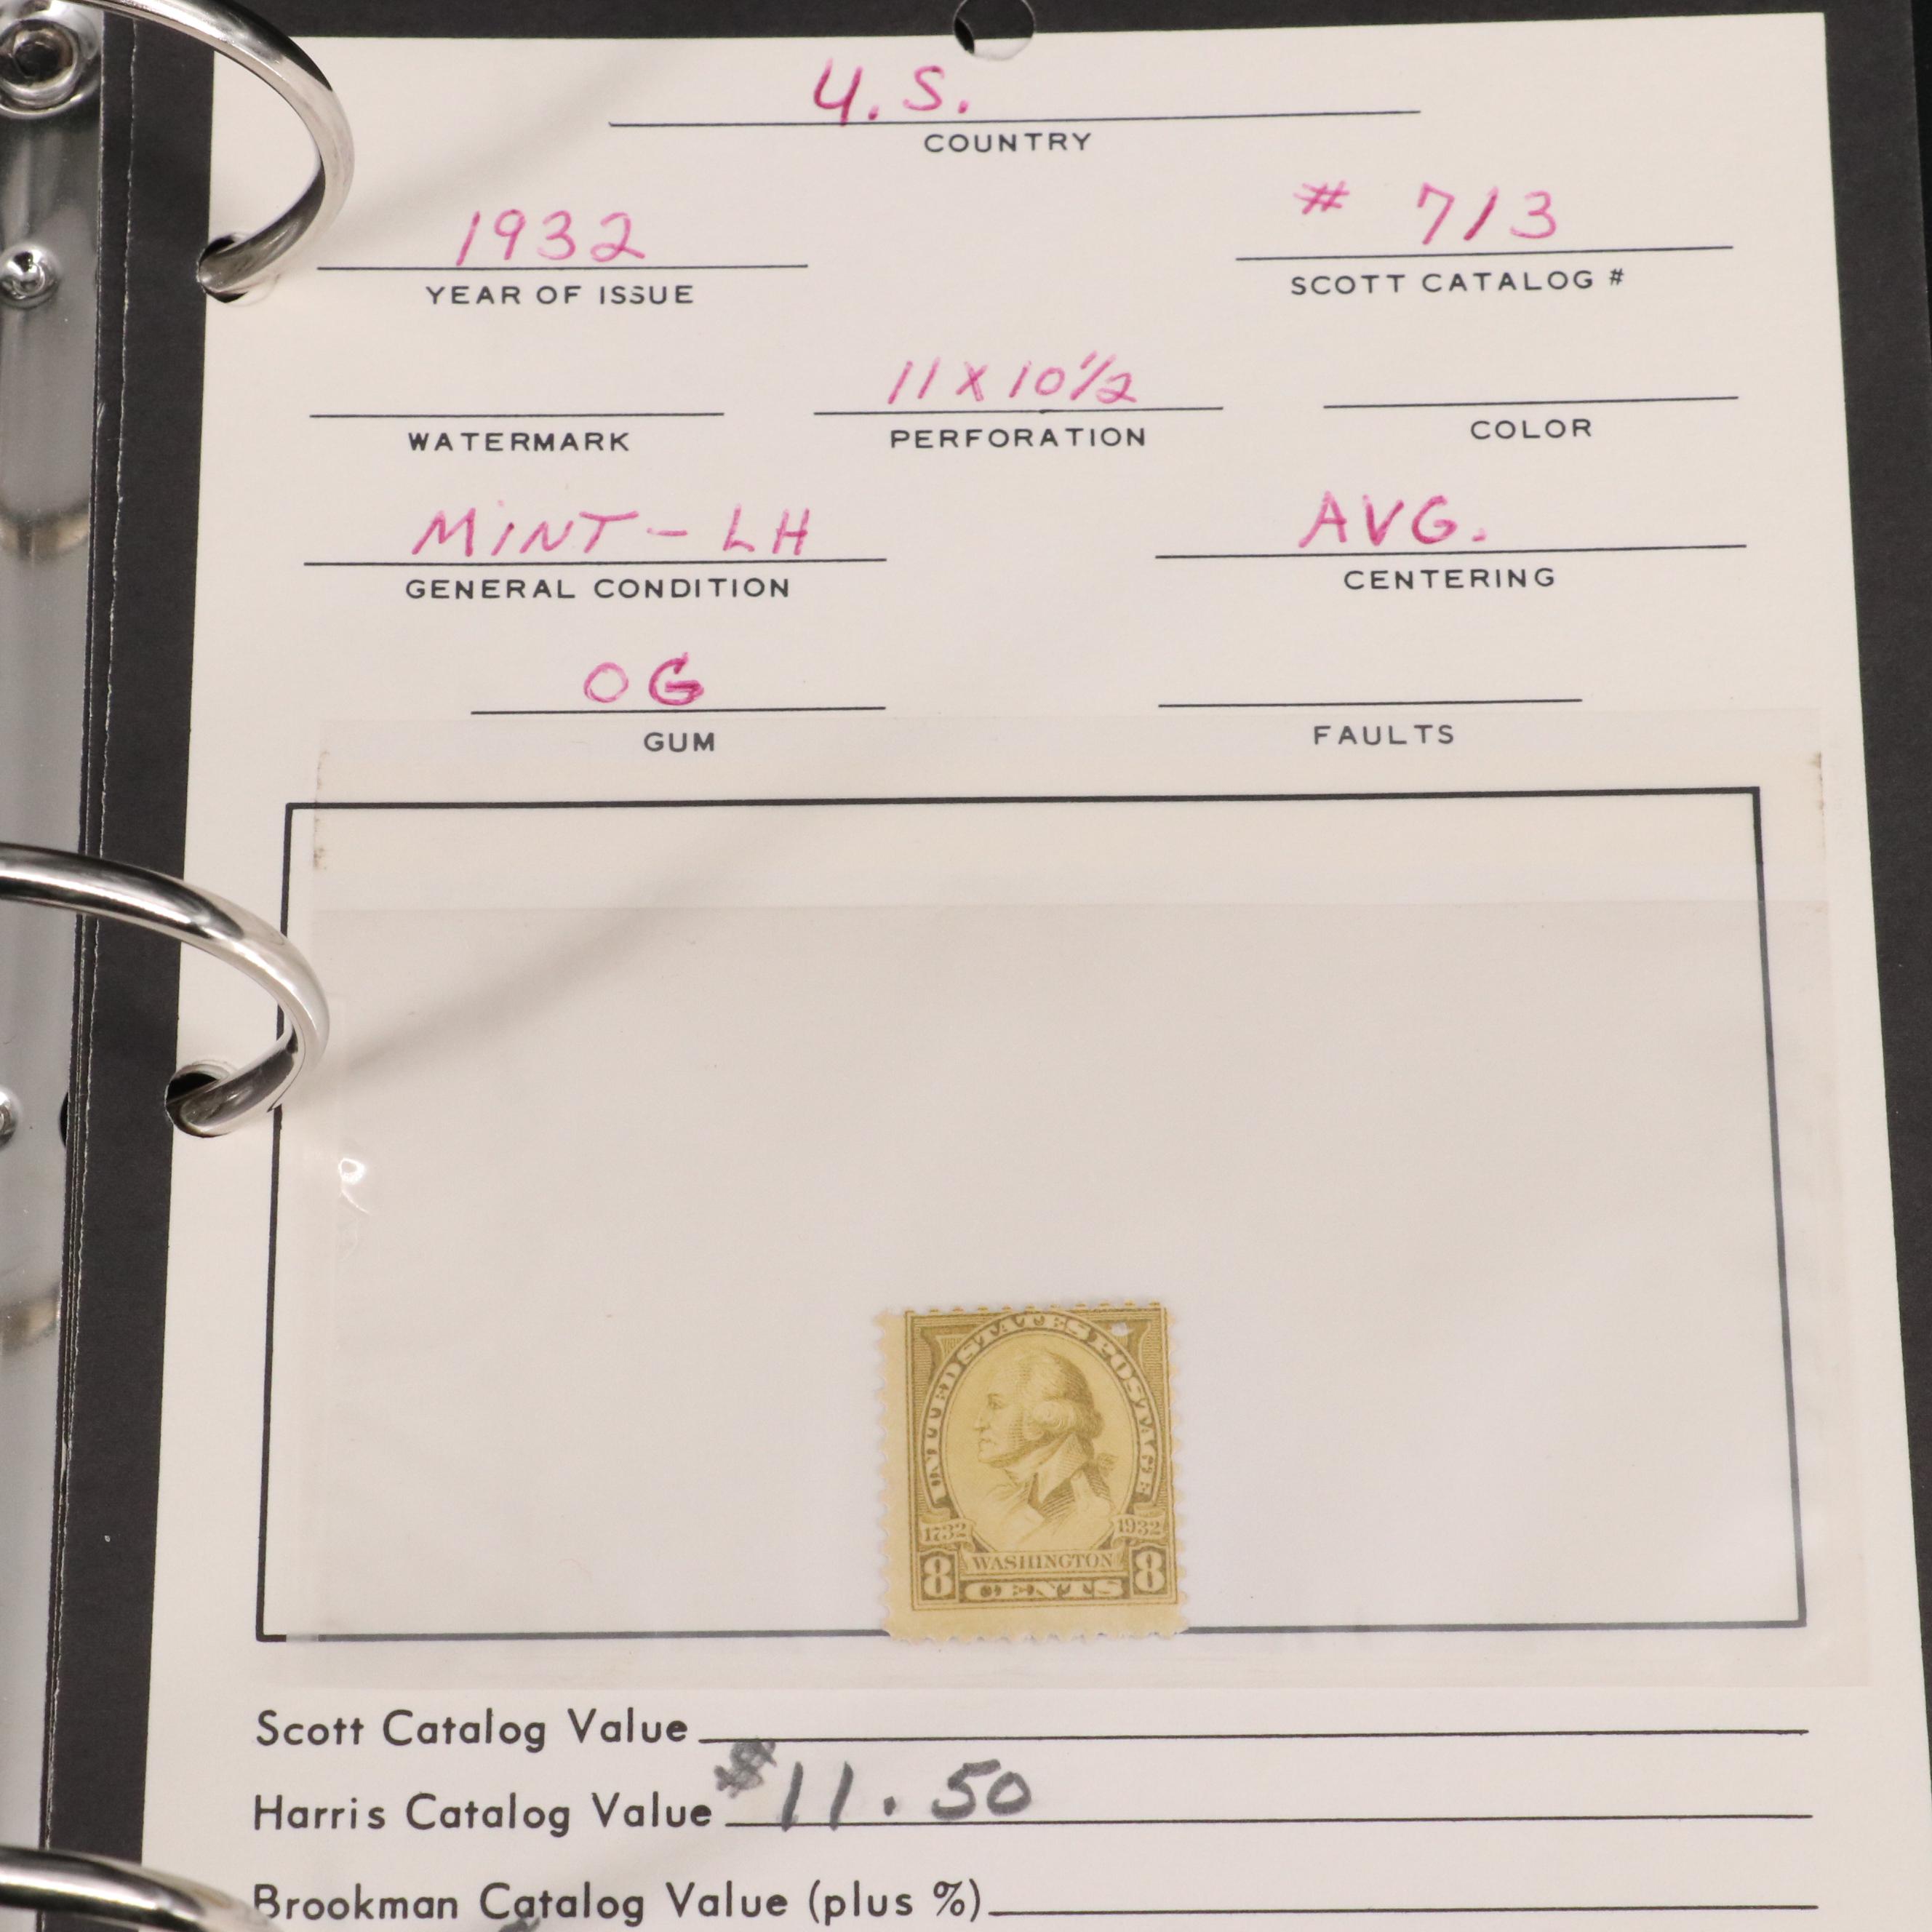 U.S.
COUNTRY
1932 # 713
YEAR OF ISSUE SCOTT CATALOG #
11 X 10 1/2
WATERMARK PERFORATION COLOR
MINT - LH AVG.
GENERAL CONDITION CENTERING
OG
GUM FAULTS
UNITED STATES POSTAGE
1732 1932
8 WASHINGTON 8
CENTS
Scott Catalog Value
Harris Catalog Value $11.50
Brookman Catalog Value (plus %)